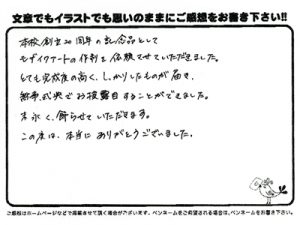 文章でもイラストでも思いのままにご感想をお書き下さい!!
本校創立20周年の記念品として
モザイクアートの作製を依頼させていただきました。
とても完成度の高く、しっかりしたものが届き、
新年式典でお披露目することができました。
末永く、飾らせていただきます。
この度は、本当にありがとうございました。
ご感想はホームページなどで掲載させて頂く場合がございます。ペンネームをご希望される場合は、ペンネームをお書き下さい。